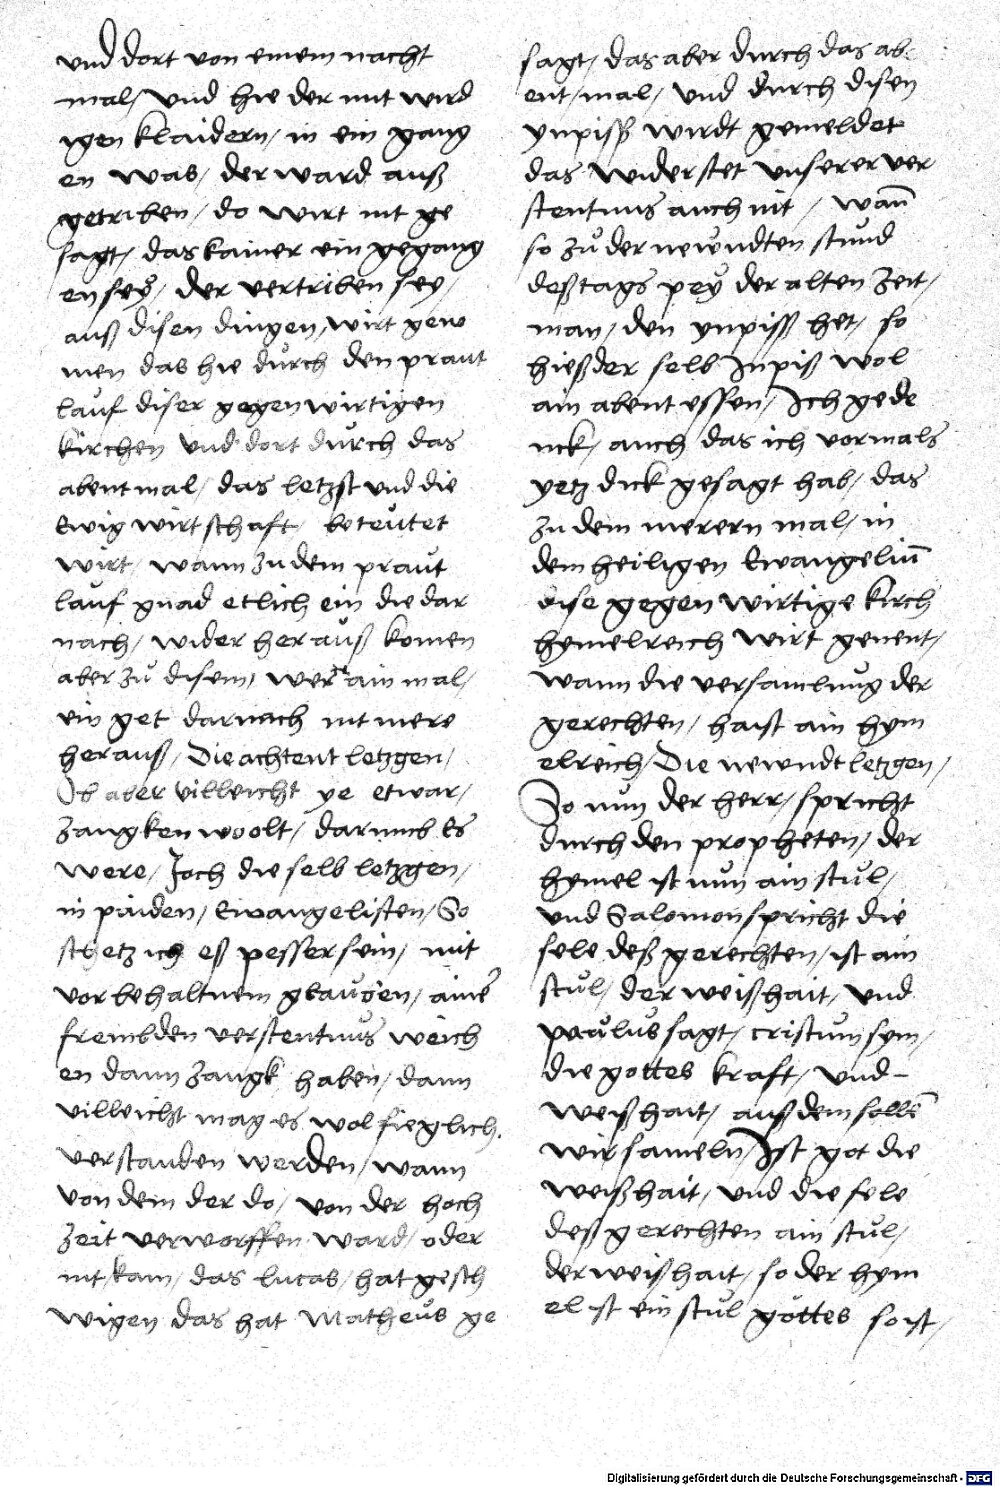 vnd dort von einem nacht
mal/ vnd hie der mit wird
igen klaidern/ in ein gang
en was/ der ward auß
getriben/ do wirt nit ge
sagt/ das kainer ein gegang
en seÿ/ der vertriben sey/
auß disen dingen/ wirt gew
men das hie durch den praut
lauf diser gegenwirtigen
kirchen vnd dort durch das
abentmal/ das letzst vnd die
Ewig wirtschaft/ beteutet
wirt/ wann zu dem praut
lauf gnad etlich ein die dar
nach/ wider her auß komen
aber zu disem/ wer ain mal/
ein get darnach nit mere
herauß/ Die achtent letzgen/
Ob aber villeicht ye etwar/
zangken woolt/ darumb Es
were/ Joch die selb letzgen/
in paiden/ Ewangelisten/ So
schetz ich eß pesser sein/ mit
vorbehaltnem glauben/ ainer
frembden verstentnus weich
en dann zangk haben/ dann
villeicht mag es wol fieglich.
verstanden werden/ wann
von dem der do/ von der hoch
zeit verworffen ward/ oder
nit kam/ das lucas/ hat gesch
wigen das hat Matheus ge
sagt/ das aber durch das ab
ent/mal/ vnd durch disen
ynpisß wirdt gemeldet
das widerstet vnserer ver
stentnus auch nit / wañ
so zů der newndten stund
deß tags peÿ der alten zeit/
man/ den ynpiss het/ so
hieß der selb Inpiß wol
ain abent essen/ Ich gede
nck/ auch das ich vormals
yetz dick gesagt hab/ das
zu dem merern mal/ in
dem heiligen Ewangeliũ
dise gegenwirtige kirch
hymelreich wirt genent/
wann die versamlnug der
gerechten/ haist ain hym
elreich/ Die newndt letzgen/
So nun der herr/ spricht
durch den propheten/ der
hymel ist nun ain stul/
vnd Salomon spricht die
sele deß gerechten/ ist ain
stul/ der weißhait/ vnd
paulus sagt/ cristum sym/
die gottes kraft/ vnd-
weißhait/ auß dem sollẽ
wir sameln/ Ist got die
weißhait/ vnd die sele
deß gerechten ain stul/
der weißhait/ so der hym
el ist ein stul gottes so ist/
Digitalisierung gefördert durch die Deutsche Forschungsgemeinschaft - DFG